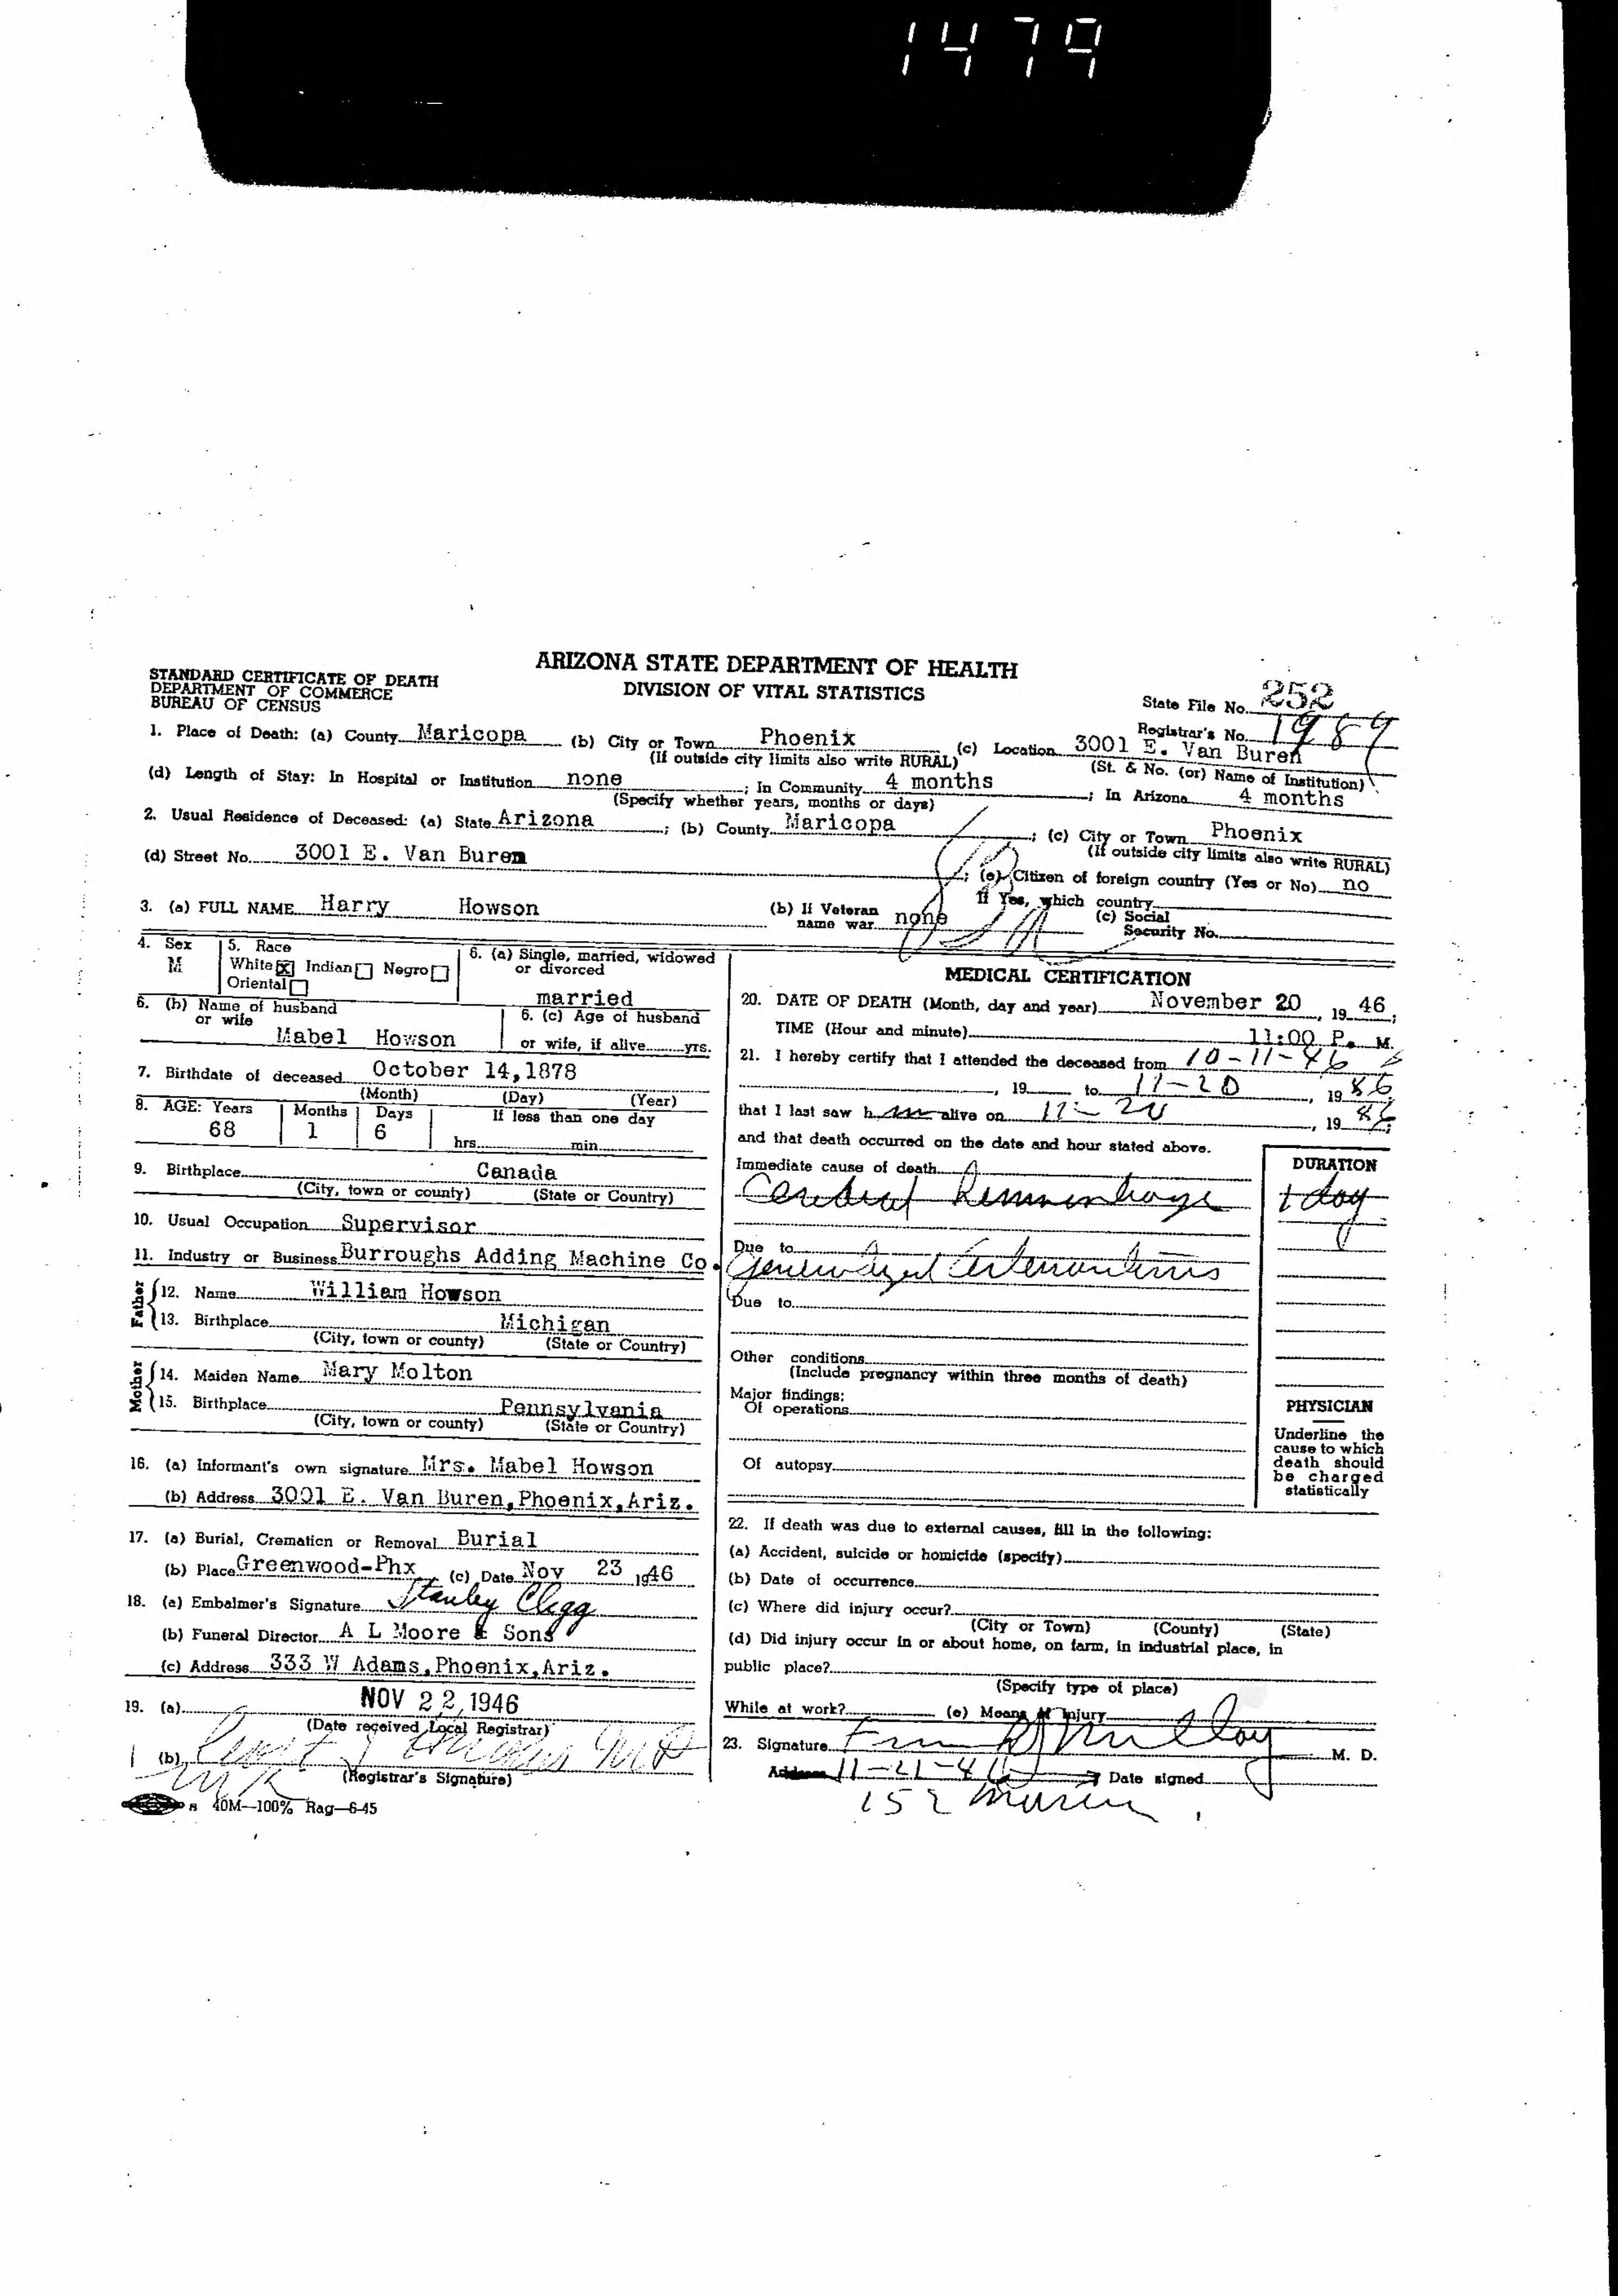 1479
ARIZONA STATE DEPARTMENT OF HEALTH
DIVISION OF VITAL STATISTICS
STANDARD CERTIFICATE OF DEATH
DEPARTMENT OF COMMERCE
BUREAU OF CENSUS
State File No. 252
Registrar's No. 1989
1. Place of Death: (a) County Maricopa (b) City or Town Phoenix (c) Location 3001 E. Van Buren
(If outside city limits also write RURAL) (St. & No. (or) Name of Institution)
(d) Length of Stay: In Hospital or Institution none ; In Community 4 months ; In Arizona 4 months
(Specify whether years, months or days)
2. Usual Residence of Deceased: (a) State Arizona ; (b) County Maricopa ; (c) City or Town Phoenix
(If outside city limits also write RURAL)
(d) Street No. 3001 E. Van Buren ; (e) Citizen of foreign country (Yes or No) no
If Yes, which country
3. (a) FULL NAME Harry Howson (b) If Veteran name war none (c) Social Security No.
4. Sex M
5. Race
White [X] Indian [ ] Negro [ ]
Oriental [ ]
6. (a) Single, married, widowed
or divorced
married
6. (b) Name of husband
or wife
Mabel Howson
6. (c) Age of husband
or wife, if alive yrs.
7. Birthdate of deceased October 14, 1878
(Month) (Day) (Year)
8. AGE: Years Months Days If less than one day
68 1 6 hrs. min.
9. Birthplace Canada
(City, town or county) (State or Country)
10. Usual Occupation Supervisor
11. Industry or Business Burroughs Adding Machine Co.
Father
12. Name William Howson
13. Birthplace Michigan
(City, town or county) (State or Country)
Mother
14. Maiden Name Mary Molton
15. Birthplace Pennsylvania
(City, town or county) (State or Country)
16. (a) Informant's own signature Mrs. Mabel Howson
(b) Address 3001 E. Van Buren, Phoenix, Ariz.
17. (a) Burial, Cremation or Removal Burial
(b) Place Greenwood-Phx (c) Date Nov 23 1946
18. (a) Embalmer's Signature Stanley Clegg
(b) Funeral Director A L Moore & Sons
(c) Address 333 W Adams, Phoenix, Ariz.
19. (a) NOV 22, 1946
(Date received Local Registrar)
(b)
(Registrar's Signature)
40M—100% Rag—6-45
MEDICAL CERTIFICATION
20. DATE OF DEATH (Month, day and year) November 20, 19 46;
TIME (Hour and minute) 11:00 P. M.
21. I hereby certify that I attended the deceased from 10-11-46
, 19 to 11-20, 19 46
that I last saw h im alive on 11-20, 19 46;
and that death occurred on the date and hour stated above.
Immediate cause of death DURATION
Cerebral hemorrhage 1 day
Due to
Generalized Arteriosclerosis
Due to
Other conditions
(Include pregnancy within three months of death)
Major findings:
Of operations
Of autopsy
PHYSICIAN
Underline the
cause to which
death should
be charged
statistically
22. If death was due to external causes, fill in the following:
(a) Accident, suicide or homicide (specify)
(b) Date of occurrence
(c) Where did injury occur?
(City or Town) (County) (State)
(d) Did injury occur in or about home, on farm, in industrial place, in
public place?
(Specify type of place)
While at work? (e) Means of Injury
23. Signature M. D.
Address 11-21-46 Date signed